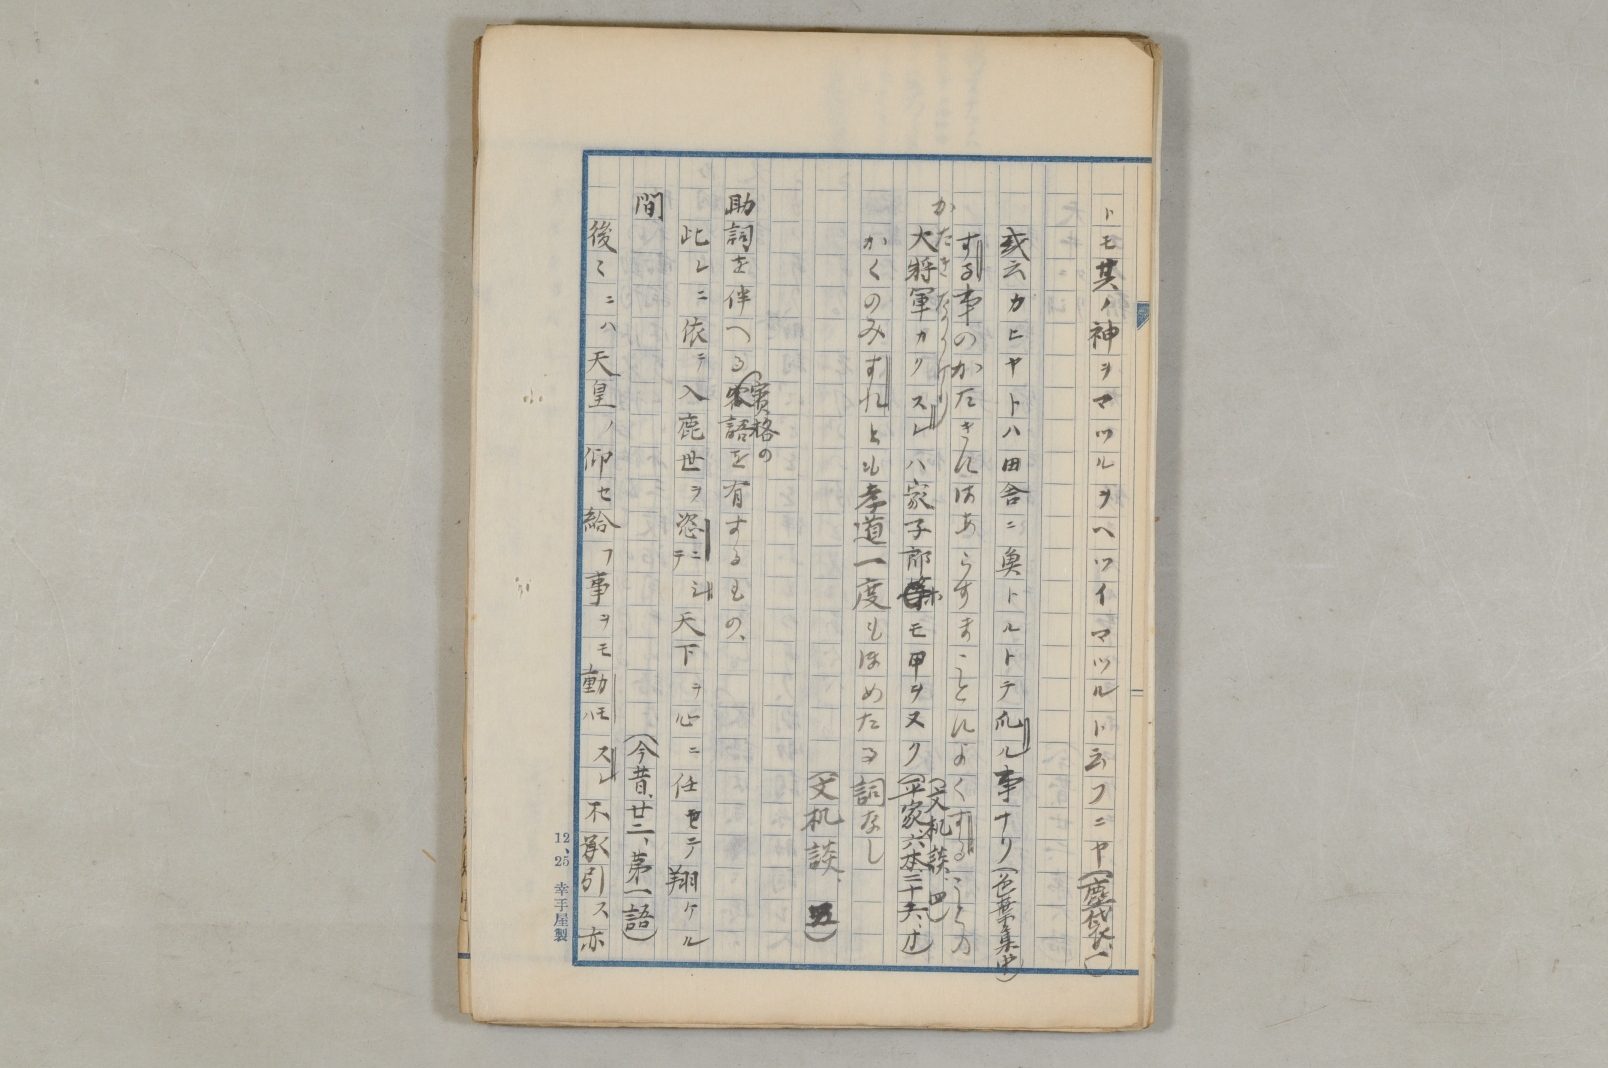 トモ其ノ神ヲマツルヲヘツイマツルト云フニヤ(塵袋、一)
或云カヒヤトハ田舎ニ奥トルトテ爪ル事ナリ(色葉集中)
する事のかたきにはあらすまことによくすることの
かたきなりけり(文机談、四)
大将軍カクスレハ家子郎等モ甲ヲヌク(平家六本、三十六、オ)
かくのみすれとも孝道一度もほめたる詞なし
(文机談、五)
助詞を伴へる賓格の語を有するもの、
此レニ依テ入鹿世ヲ恣ニシテ天下ヲ心ニ任セテ翔ケル
間(今昔、廿二、第一語)
後〻ニハ天皇ノ仰セ給フ事ヲモ動ハモスレ不承引ス亦
12、25 幸手屋製